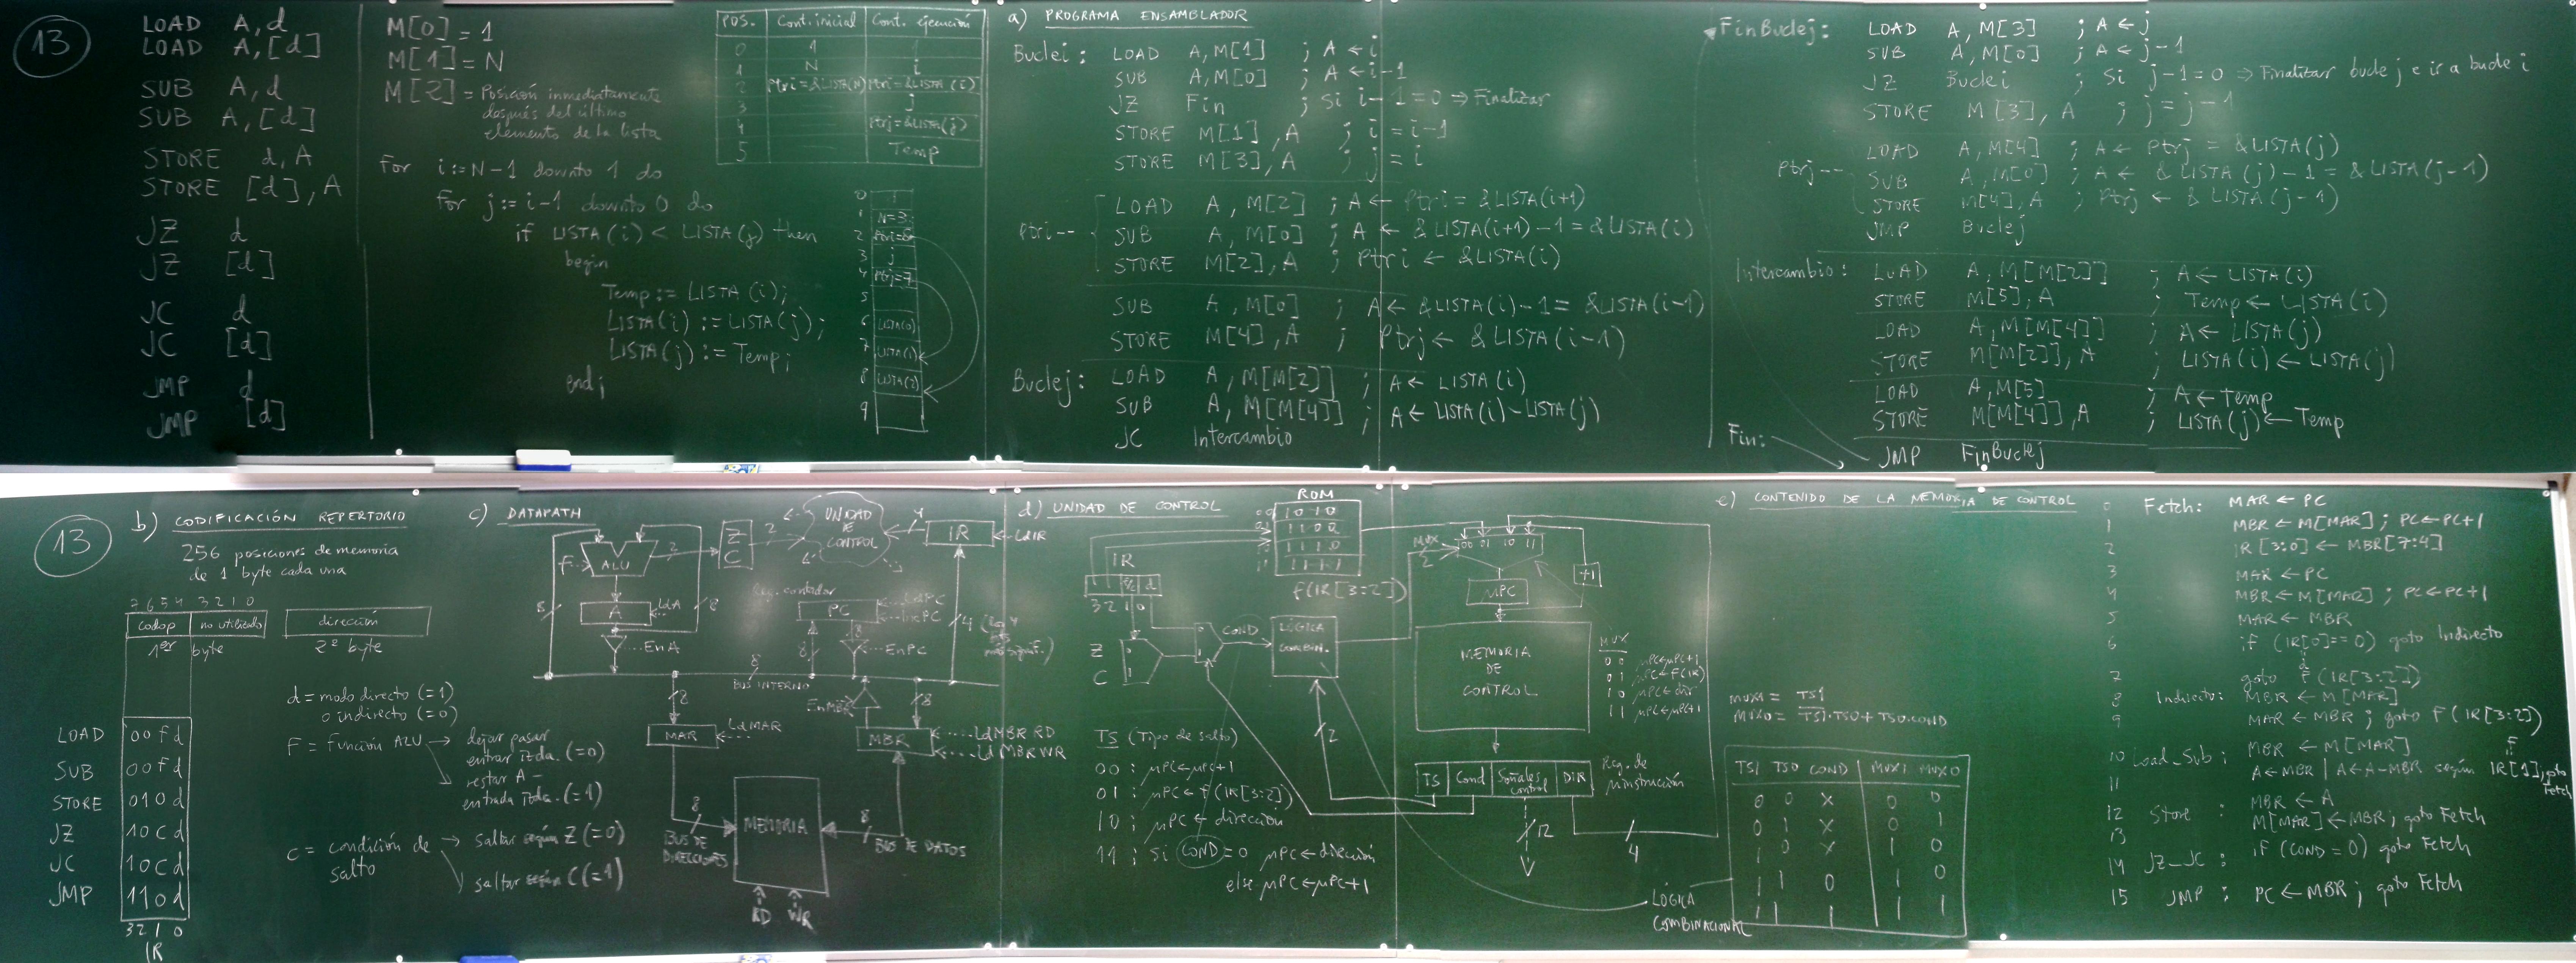 13
LOAD A,d
LOAD A,[d]
SUB A,d
SUB A,[d]
STORE d,A
STORE [d],A
JZ d
JZ [d]
JC d
JC [d]
JMP d
JMP [d]
M[0] = 1
M[1] = N
M[2] = Posición inmediatamente
después del último
elemento de la lista
for i:=N-1 downto 1 do
for j:=i-1 downto 0 do
if LISTA(i) < LISTA(j) then
begin
Temp := LISTA(i);
LISTA(i) := LISTA(j);
LISTA(j) := Temp;
end;
POS. Cont. inicial Cont. ejecución
0 1 1
1 N i
2 Ptri=&LISTA(N) Ptri=&LISTA(i)
3 j
4 Ptrj=&LISTA(j)
5 Temp
0 1
1 N=3
2
3 j
4 Ptrj=7
5
6 LISTA(0)
7 LISTA(1)
8 LISTA(2)
9
a) PROGRAMA ENSAMBLADOR
Buclei: LOAD A,M[1] ; A ← i
SUB A,M[0] ; A ← i-1
JZ Fin ; Si i-1=0 ⇒ Finalizar
STORE M[1],A ; i=i-1
STORE M[3],A ; j=i
Ptri-- LOAD A,M[2] ; A ← Ptri = &LISTA(i+1)
SUB A,M[0] ; A ← &LISTA(i+1)-1=&LISTA(i)
STORE M[2],A ; Ptri ← &LISTA(i)
SUB A,M[0] ; A ← &LISTA(i)-1= &LISTA(i-1)
STORE M[4],A ; Ptrj ← &LISTA(i-1)
Buclej: LOAD A,M[M[2]] ; A ← LISTA(i)
SUB A,M[M[4]] ; A ← LISTA(i)-LISTA(j)
JC Intercambio
FinBuclej: LOAD A,M[3] ; A ← j
SUB A,M[0] ; A ← j-1
JZ Buclei ; Si j-1=0 ⇒ Finalizar bucle j e ir a bucle i
STORE M[3],A ; j=j-1
LOAD A,M[4] ; A ← Ptrj = &LISTA(j)
Ptrj-- SUB A,M[0] ; A ← &LISTA(j)-1=&LISTA(j-1)
STORE M[4],A ; Ptrj ← &LISTA(j-1)
JMP Buclej
Intercambio: LOAD A,M[M[2]] ; A ← LISTA(i)
STORE M[5],A ; Temp ← LISTA(i)
LOAD A,M[M[4]] ; A ← LISTA(j)
STORE M[M[2]],A ; LISTA(i) ← LISTA(j)
LOAD A,M[5] ; A ← Temp
STORE M[M[4]],A ; LISTA(j) ← Temp
JMP FinBuclej
Fin:
13
b) CODIFICACIÓN REPERTORIO
256 posiciones de memoria
de 1 byte cada una
7 6 5 4 3 2 1 0
codop no utilizado dirección
1er byte 2º byte
d = modo directo (=1)
o indirecto (=0)
F = función ALU → dejar pasar
entrar izda. (=0)
restar A -
entrada izda. (=1)
C = condición de salto → saltar según Z (=0)
saltar según C (=1)
LOAD 00Fd
SUB 00Fd
STORE 010d
JZ 10Cd
JC 10Cd
JMP 110d
3210
IR
c) DATAPATH
F ALU 2 Z C 2 UNIDAD DE CONTROL 4 IR LdIR
8 A LdA 8
EnA
Reg. contador
PC LdPC
IncPC
8 8 EnPC
4
BUS INTERNO
8
8 EnMBR 8
MAR LdMAR
MBR LdMBR RD
LdMBR WR
8 BUS DE DIRECCIONES
MEMORIA
8 BUS DE DATOS
RD WR
d) UNIDAD DE CONTROL
ROM
00 1010
01 1100
10 1110
11 1111
f(IR[3:2])
IR
d
3 2 1 0
Z
C
0
1
COND
LÓGICA COMBIN.
MUX
2
00 01 10 11
+1
μPC
MEMORIA
DE
CONTROL
MUX
00 μPC←μPC+1
01 μPC←F(IR)
10 μPC←dir
11 μPC←μPC+1
2
TS Cond Señales control DIR
Reg. de μinstrucción
12
4
TS (Tipo de salto)
00: μPC←μPC+1
01: μPC← f(IR[3:2])
10: μPC ← dirección
11: Si COND=0 μPC←dirección
else μPC←μPC+1
LÓGICA
COMBINACIONAL
e) CONTENIDO DE LA MEMORIA DE CONTROL
MUX1 = TS1
MUX0 = TS1·TS0+TS0·COND
TS1 TS0 COND MUX1 MUX0
0 0 X 0 0
0 1 X 0 1
1 0 X 1 0
1 1 0 1 0
1 1 1 1 1
0 Fetch: MAR ← PC
1 MBR ← M[MAR]; PC←PC+1
2 IR[3:0] ← MBR[7:4]
3 MAR ← PC
4 MBR ← M[MAR]; PC←PC+1
5 MAR ← MBR
6 if (IR[0]==0) goto Indirecto
d
7 goto f(IR[3:2])
8 Indirecto: MBR ← M[MAR]
9 MAR ← MBR; goto F(IR[3:2])
10 Load_Sub: MBR ← M[MAR]
F
11 A←MBR | A←A-MBR según IR[1]; goto Fetch
12 Store: MBR ← A
13 M[MAR] ← MBR; goto Fetch
14 JZ_JC: if (COND=0) goto Fetch
15 JMP: PC ← MBR; goto Fetch